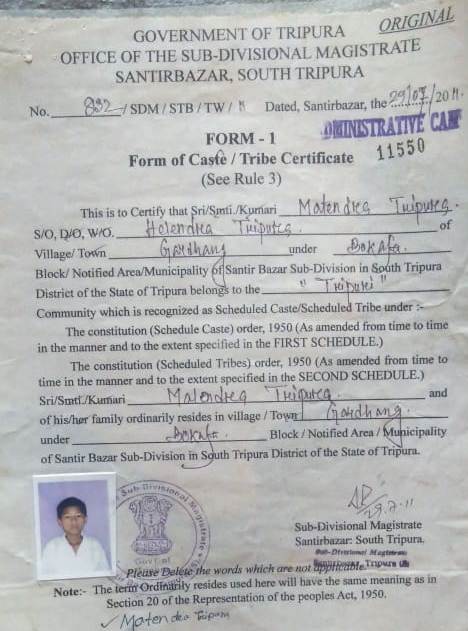 ORIGINAL
GOVERNMENT OF TRIPURA
OFFICE OF THE SUB-DIVISIONAL MAGISTRATE
SANTIRBAZAR, SOUTH TRIPURA
No. 892 / SDM / STB / TW / 11 Dated, Santirbazar, the 29/07/2011.
DMINISTRATIVE CAM
11550
FORM - 1
Form of Caste / Tribe Certificate
(See Rule 3)
This is to Certify that Sri/Smti./Kumari Matendra Tripura
S/O, D/O, W/O. Tripura of
Village/ Town Gardhang under Bokafa
Block/ Notified Area/Municipality of Santir Bazar Sub-Division in South Tripura
District of the State of Tripura belongs to the "Tripuri"
Community which is recognized as Scheduled Caste/Scheduled Tribe under :-
The constitution (Schedule Caste) order, 1950 (As amended from time to time
in the manner and to the extent specified in the FIRST SCHEDULE.)
The constitution (Scheduled Tribes) order, 1950 (As amended from time to
time in the manner and to the extent specified in the SECOND SCHEDULE.)
Sri/Smti/Kumari Matendra Tripura and
of his/her family ordinarily resides in village / Town Gardhang
under Bokafa. Block / Notified Area / Municipality
of Santir Bazar Sub-Division in South Tripura District of the State of Tripura.
Sub-Divisional Magistrate
29.7.11
Sub-Divisional Magistrate
Santirbazar: South Tripura.
Sub-Divisional Magistrate
Santirbazar, Tripura (S)
Please Delete the words which are not applicable.
Note:- The term Ordinarily resides used here will have the same meaning as in
Section 20 of the Representation of the peoples Act, 1950.
Matendra Tripura